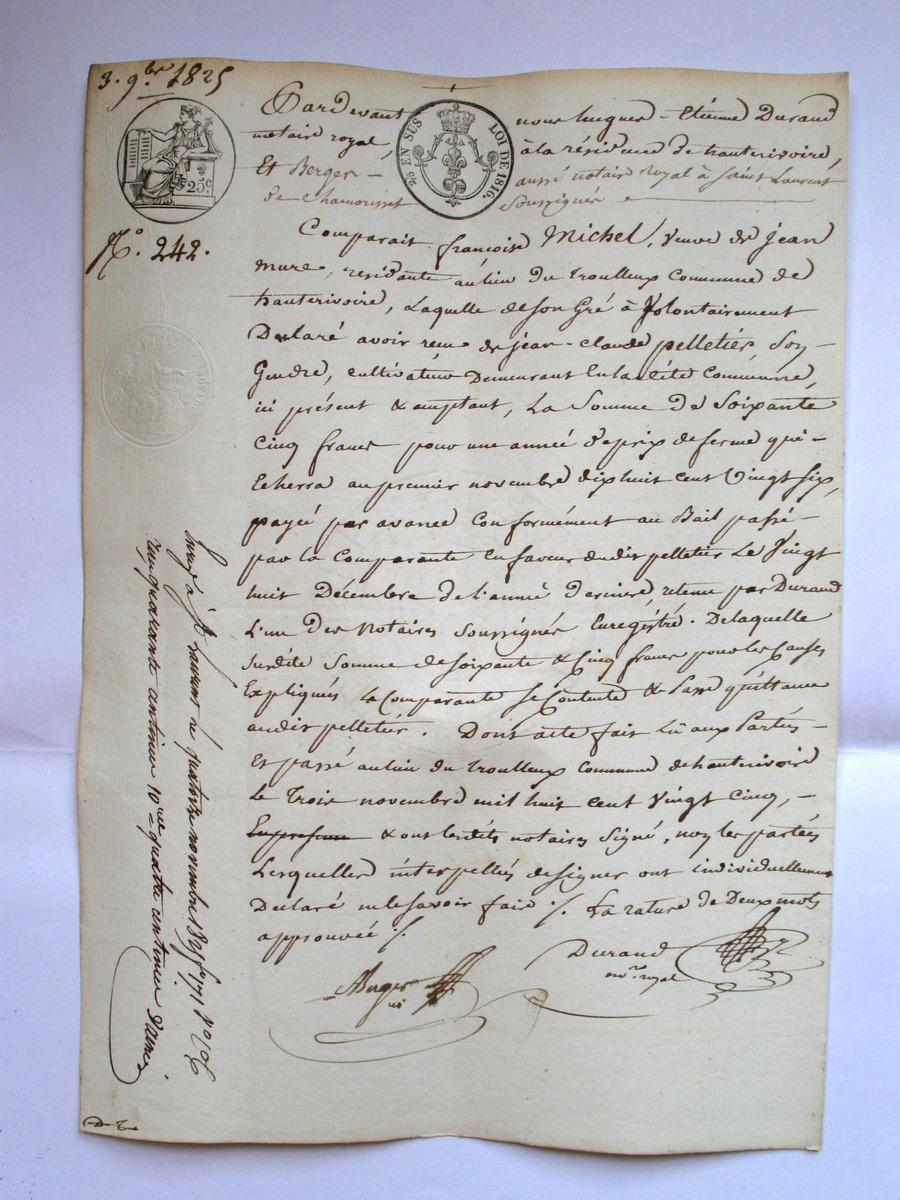 3. 9bre 1825
25c.
2/10 EN SUS LOI DE 1816.
No. 242.
Pardevant nous hugues - Etienne Durand
notaire royal, à la résidence de hauterivoire,
Et Berger - aussi notaire royal à Saint Laurent
de Chamousset Soussignés
Comparait françoise Michel, veuve de jean
mure, residante au lieu du Troulleux Commune de
hauterivoire, Laquelle de son Gré à Volontairement
Declaré avoir reçu de jean-claude pelletier Son
Gendre, cultivateur Demeurant En la dite Commune,
ici présent & acceptant, La Somme De Soixante
Cinq francs pour une année de prix de ferme qui
Echerra au premier novembre dix huit cent Vingt Six,
payée par avance Conformément au Bail passé
par la Comparante en faveur dudit pelletier Le Vingt
huit Décembre de l'année derniere, retenu par Durand
L'un Des Notaires Soussignés Enregistré. De laquelle
Susdite Somme de soixante & Cinq francs pour les Causes
Expliqués la Comparante Se Contente & Passe quittance
audit pelletier. Dont acte fait Lû aux Parties
Et passé au lieu du Troulleux commune de hauterivoire
Le Trois novembre mil huit cent Vingt Cinq,
& ont lesdits notaires Signé, non les parties
Lesquelles interpellés de signer ont individuellement
Declaré ne le savoir faire ./. La rature de Deux mots
approuvée ./.
Berger
Durand
nore royal
Enregé à St Laurent le quatorze novembre 1825 fo 171 Vo
reçu quarante centimes 10me quatre centimes